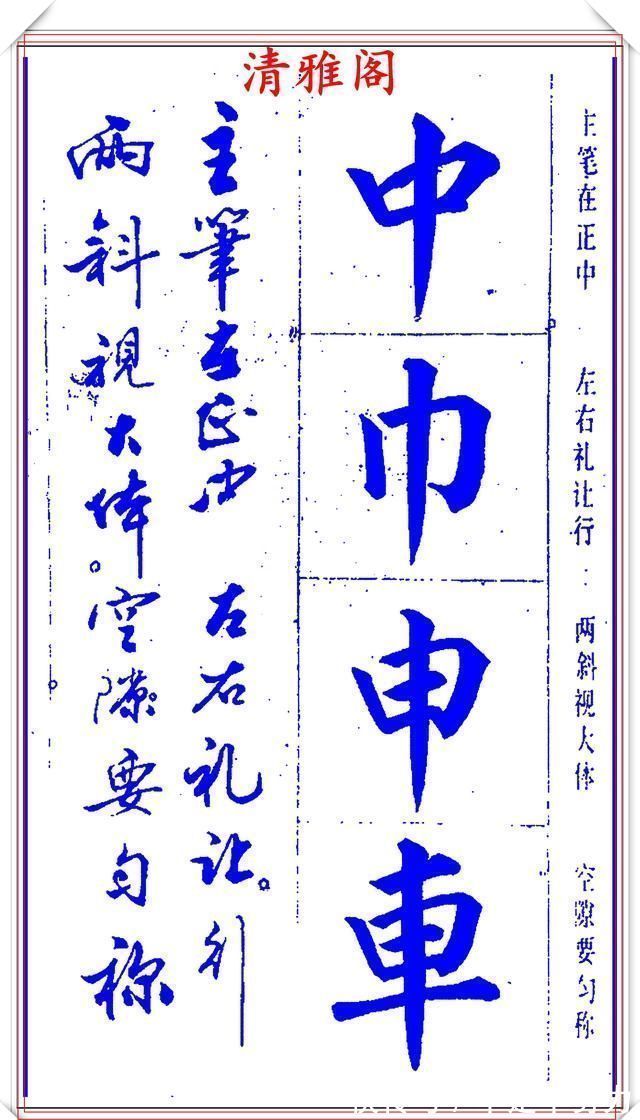 清雅阁
主笔在正中 左右礼让行： 两斜视大体 空隙要匀称
中
巾
申
車
主筆在正中 左右礼让行。
两斜視大体。空隙要匀称